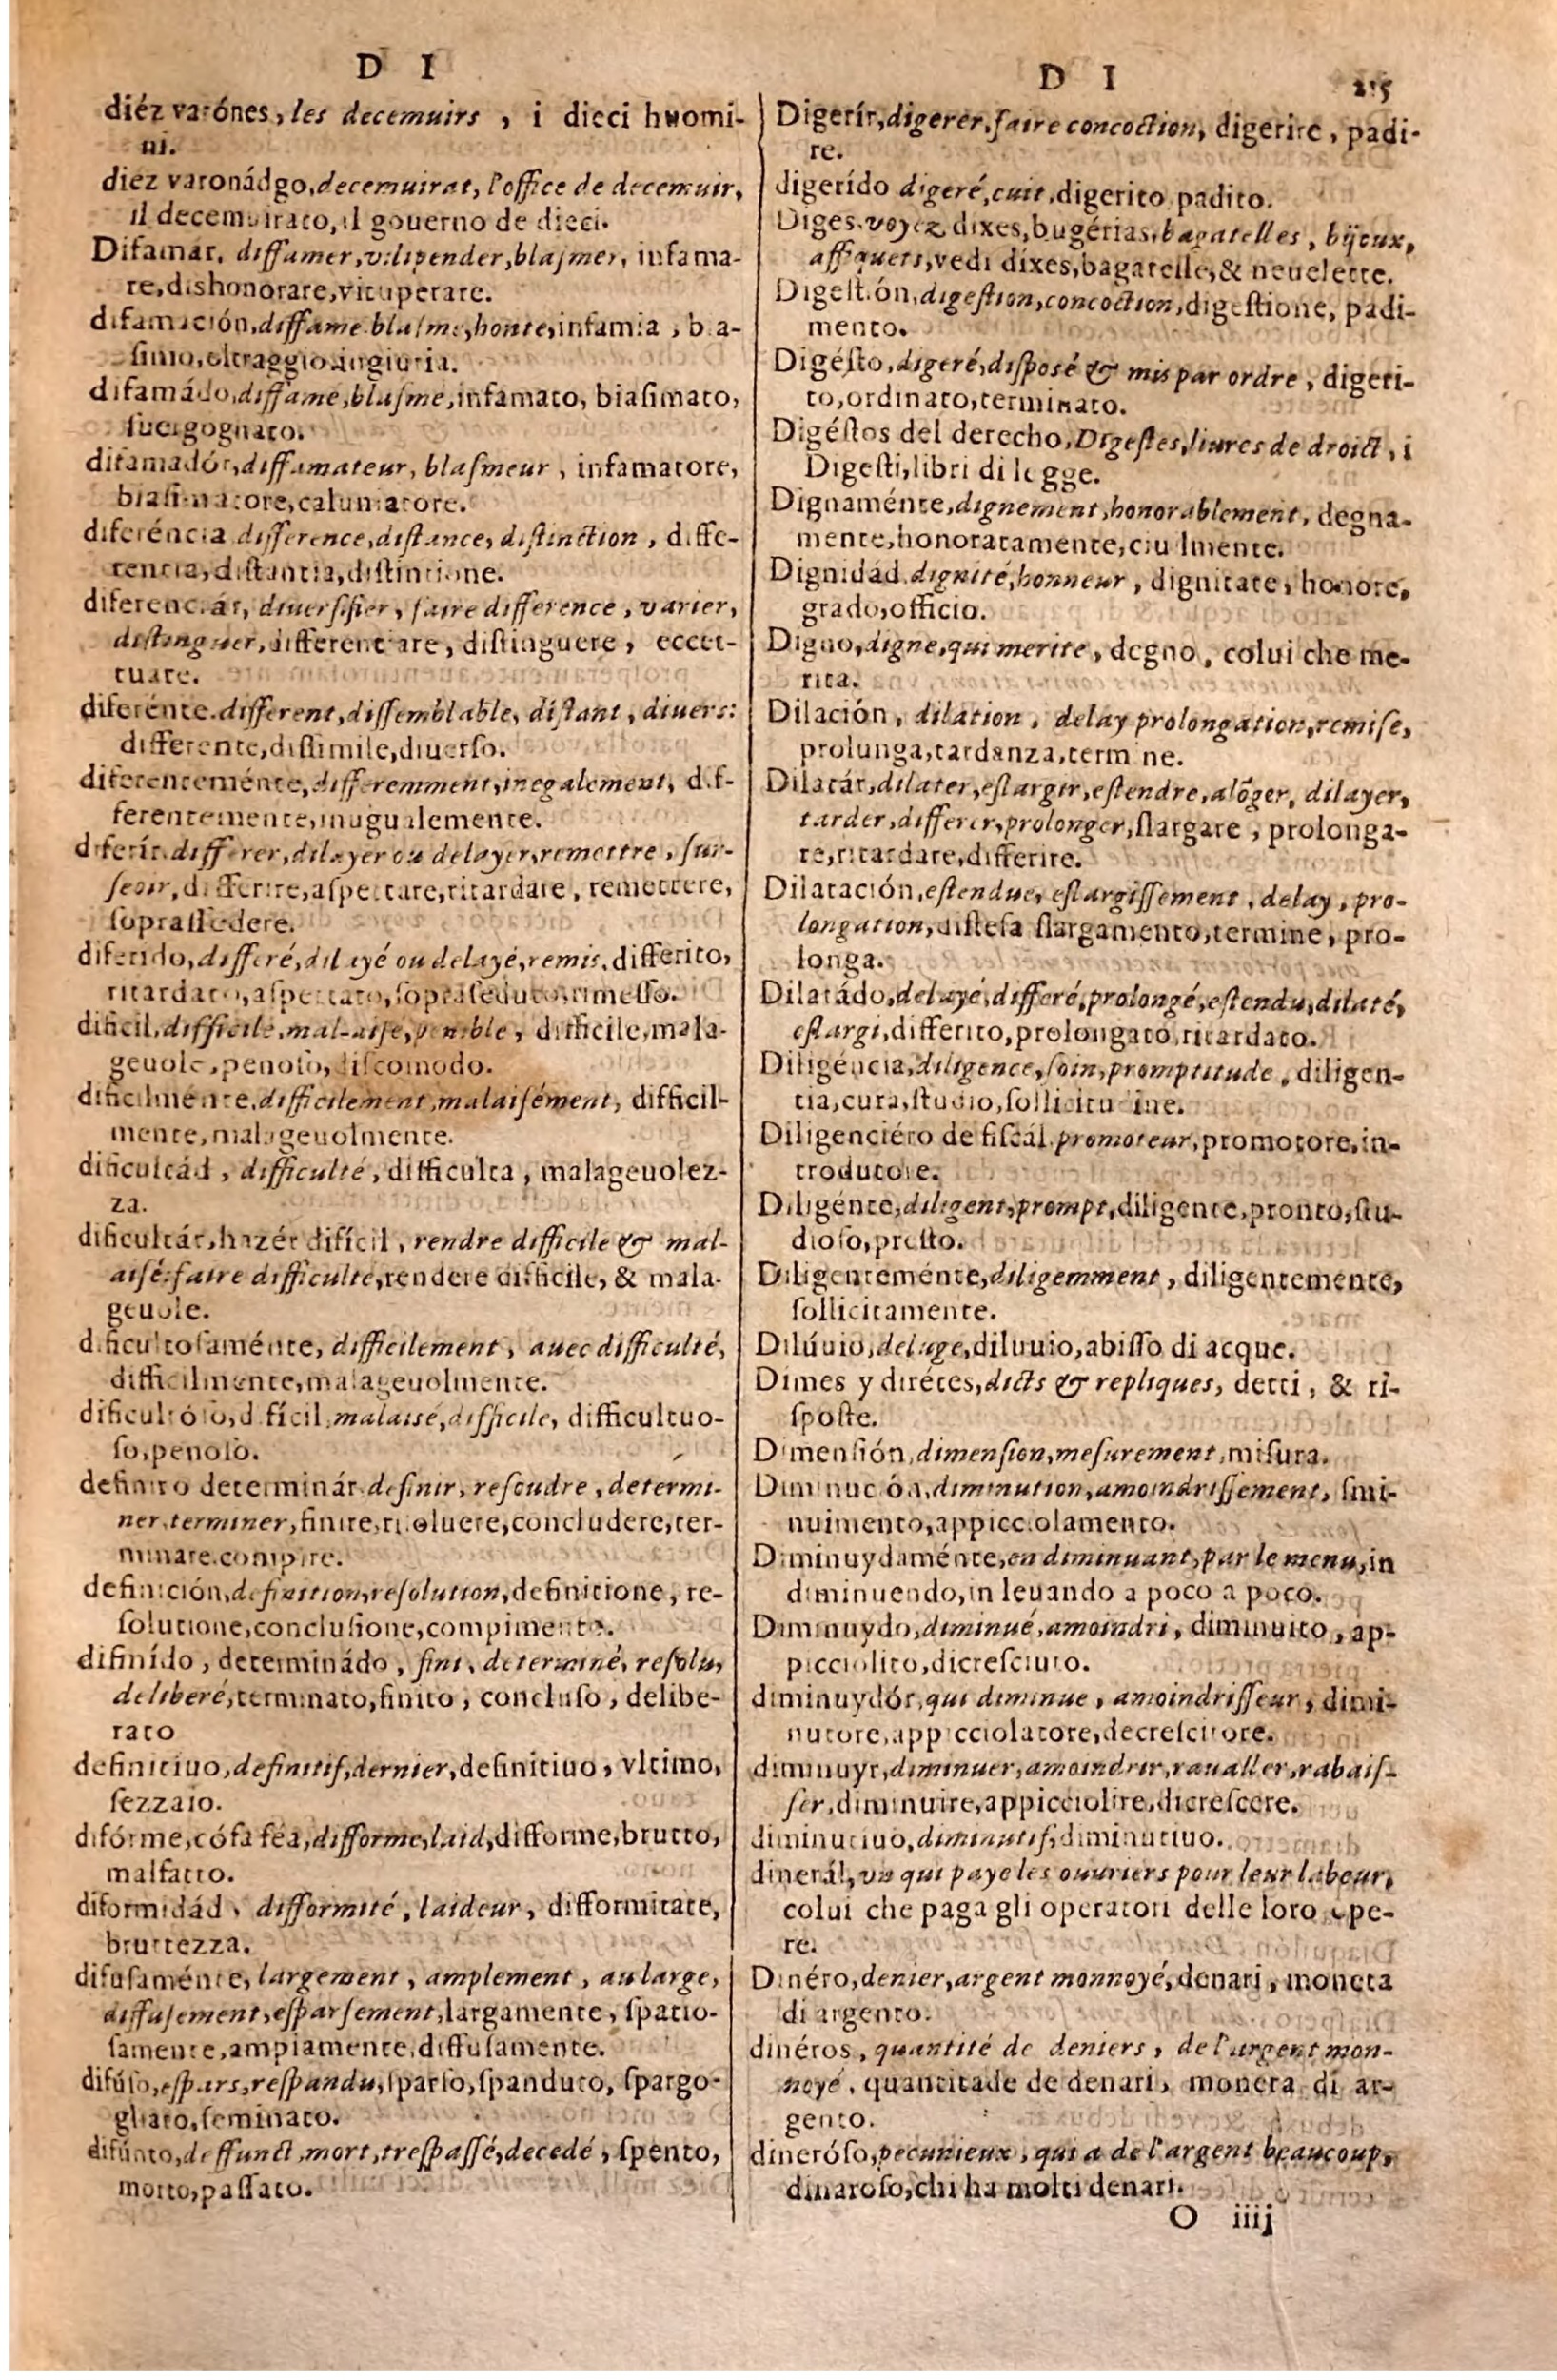 D I
diéz varónes, les decemuirs, i dieci huomi-
ni.
diez varonádgo, decemuirat, l'office de decemuir,
il decemuirato, il gouerno de dieci.
Difamár, diffamer, vilipender, blaſmer, infama-
re, dishonorare, vituperare.
difamación, diffame, blaſme, honte, infamia, bia-
ſimo, oltraggio, ingiuria.
difamádo, diffamé, blaſmé, infamato, biaſimato,
ſuergognato.
difamadór, diffamateur, blaſmeur, infamatore,
biaſimatore, caluniatore.
diferéncia difference, diſtance, diſtinction, diffe-
rentia, diſtantia, diſtintione.
diferenciár, diuerſifier, faire difference, varier,
diſtinguer, differentiare, diſtinguere, eccet-
tuare.
diferénte. different, diſſemblable, diſtant, diuers:
differente, diſſimile, diuerſo.
diferenteménte, differemment, inegalement, dif-
ferentemente, inugualemente.
diferír. differer, dilayer ou delayer, remettre, ſur-
ſeoir, differire, aſpettare, ritardare, remettere,
ſopraſſedere.
diferido, differé, dilayé ou delayé, remis, differito,
ritardato, aſpettato, ſopraſeduto, rimeſſo.
dificil, difficile, mal-aiſé, penible, difficile, mala-
geuole, penoſo, diſcomodo.
dificilménte, difficilement, malaiſément, difficil-
mente, malageuolmente.
dificultád, difficulté, difficulta, malageuolez-
za.
dificultár, hazér difícil, rendre difficile & mal-
aiſé: faire difficulté, rendere difficile, & mala-
geuole.
dificultoſaménte, difficilement, auec difficulté,
difficilmente, malageuolmente.
dificultóſo, difícil, malaisé, difficile, difficultuo-
ſo, penoſo.
definiro determinár definir, reſoudre, determi-
ner, terminer, finire, riſoluere, concludere, ter-
minare, compire.
definición, definition, reſolution, definitione, re-
ſolutione, concluſione, compimento.
difinído, determinádo, fini, determiné, reſolu,
deliberé, terminato, finito, concluſo, delibe-
rato
definitiuo, definitif, dernier, definitiuo, vltimo,
ſezzaio.
difórme, cóſa féa, difforme, laid, difforme, brutto,
malfatto.
diformidád, difformité, laideur, difformitate,
bruttezza.
difuſaménte, largement, amplement, au large,
diffuſement, eſparſement, largamente, ſpatio-
ſamente, ampiamente, diffuſamente.
difúſo, eſpars, reſpandu, ſparſo, ſpanduto, ſpargo-
gliato, ſeminato.
difúnto, deffunct, mort, treſpaſſé, decedé, ſpento,
morto, paſſato.
D I 215
Digerír, digerer, faire concoction, digerire, padi-
re.
digerído digeré, cuit, digerito padito.
Diges. voyez dixes, bugérias, bagatelles, bijeux,
affiquets, vedi dixes, bagatelle, & neuelette.
Digeſtión, digeſtion, concoction, digeſtione, padi-
mento.
Digéſto, digeré, diſposé & mis par ordre, digeri-
to, ordinato, terminato.
Digéſtos del derecho, Digeſtes, liures de droict, i
Digeſti, libri di legge.
Dignaménte, dignement, honorablement, degna-
mente, honoratamente, ciuilmente.
Dignidád. dignité, honneur, dignitate, honore,
grado, officio.
Digno, digne, qui merite, degno, colui che me-
rita.
Dilación, dilation, delay prolongation, remiſe,
prolunga, tardanza, termine.
Dilatár, dilater, eſlargir, eſtendre, alõger, dilayer,
tarder, differer, prolonger, ſlargare, prolonga-
re, ritardare, differire.
Dilatación, eſtendue, eſlargiſſement, delay, pro-
longation, diſteſa ſlargamento, termine, pro-
longa.
Dilatádo, delayé, differé, prolongé, eſtendu, dilaté,
eſlargi, differito, prolongato, ritardato.
Diligéncia, diligence, ſoin, promptitude, diligen-
tia, cura, ſtudio, ſollicitudine.
Diligenciéro de fiſcál. promoteur, promotore, in-
trodutore.
Diligénte, diligent, prompt, diligente, pronto, ſtu-
dioſo, preſto.
Diligenteménte, diligemment, diligentemente,
ſollicitamente.
Dilúuio, deluge, diluuio, abiſſo di acque.
Dimes y diréces, dicts & repliques, detti, & ri-
ſpoſte.
Dimenſión, dimenſion, meſurement, miſura.
Diminución, diminution, amoindriſſement, ſmi-
nuimento, appicciolamento.
Diminuydaménte, en diminuant, par le menu, in
diminuendo, in leuando a poco a poco.
Diminuydo, diminué, amoindri, diminuito, ap-
picciolito, dicreſciuto.
diminuydór, qui diminue, amoindriſſeur, dimi-
nutore, appicciolatore, decreſcitore.
diminuyr, diminuer, amoindrir, raualler, rabaiſ-
ſer, diminuire, appicciolire, dicreſcere.
diminutiuo, diminutif, diminutiuo.
dinerál, vn qui paye les ouuriers pour leur labeur,
colui che paga gli operatori delle loro ope-
re.
Dinéro, denier, argent monnoyé, denari, moneta
di argento.
dinéros, quantité de deniers, de l'argent mon-
noyé, quantitade de denari, moneta di ar-
gento.
dineróſo, pecunieux, qui a de l'argent beaucoup,
dinaroſo, chi ha molti denari.
O iiij